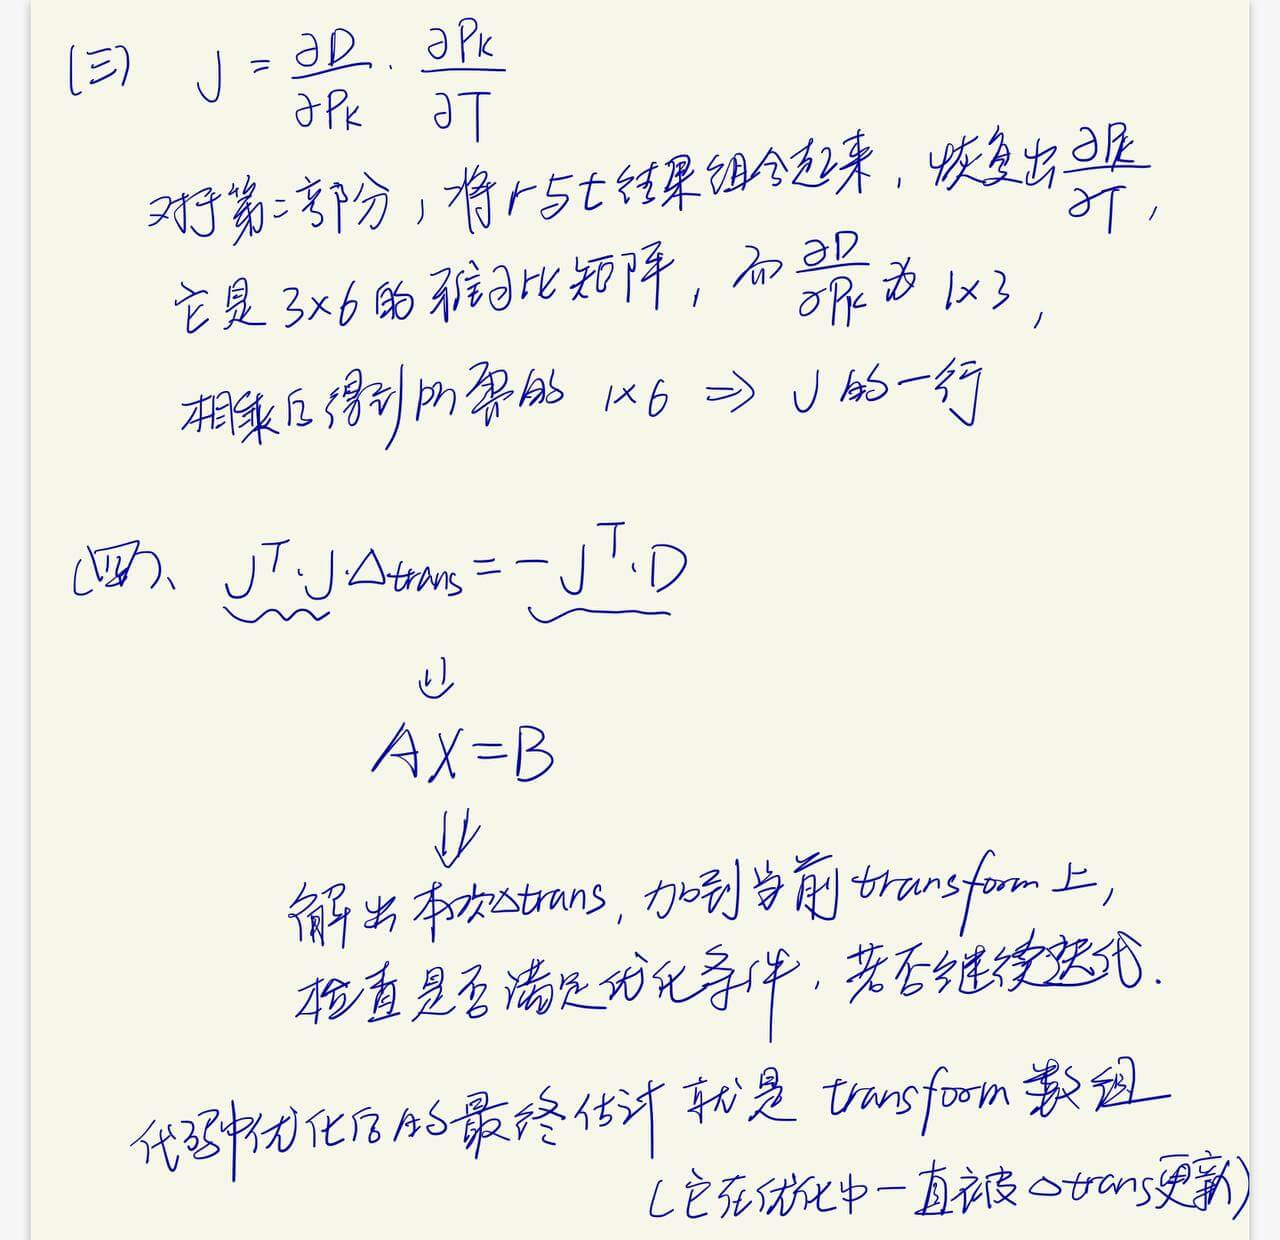 (三) J = ∂D/∂Pk · ∂Pk/∂T
对于第二部分，将r与t结果组合起来，恢复出∂Pk/∂T，
它是3×6的雅可比矩阵，而∂D/∂Pk为1×3，
相乘后得到所要的 1×6 ⇒ J的一行
(四)、 J^T·J·Δtrans = -J^T·D
⇓
AX=B
⇓
解出本次Δtrans，加到当前transform上，
检查是否满足优化条件，若否继续迭代.
代码中优化后的最终估计就是transform数组
(它在优化中一直被Δtrans更新)